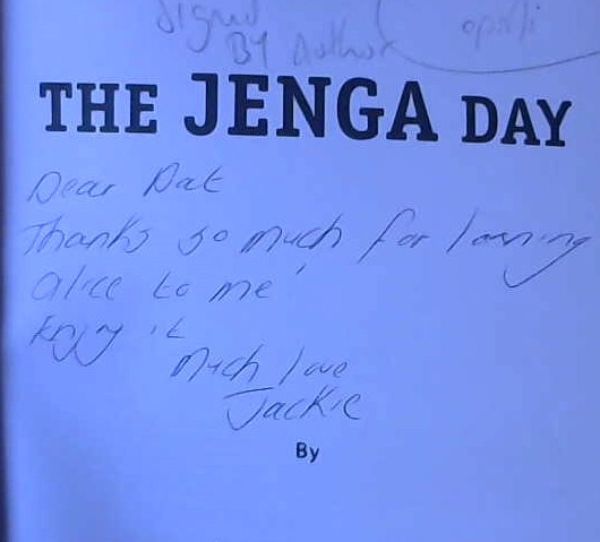 Signed
By Author
THE JENGA DAY
Dear Pat
Thanks so much for loaning
Alice to me
Enjoy it
Much love
Jackie
By